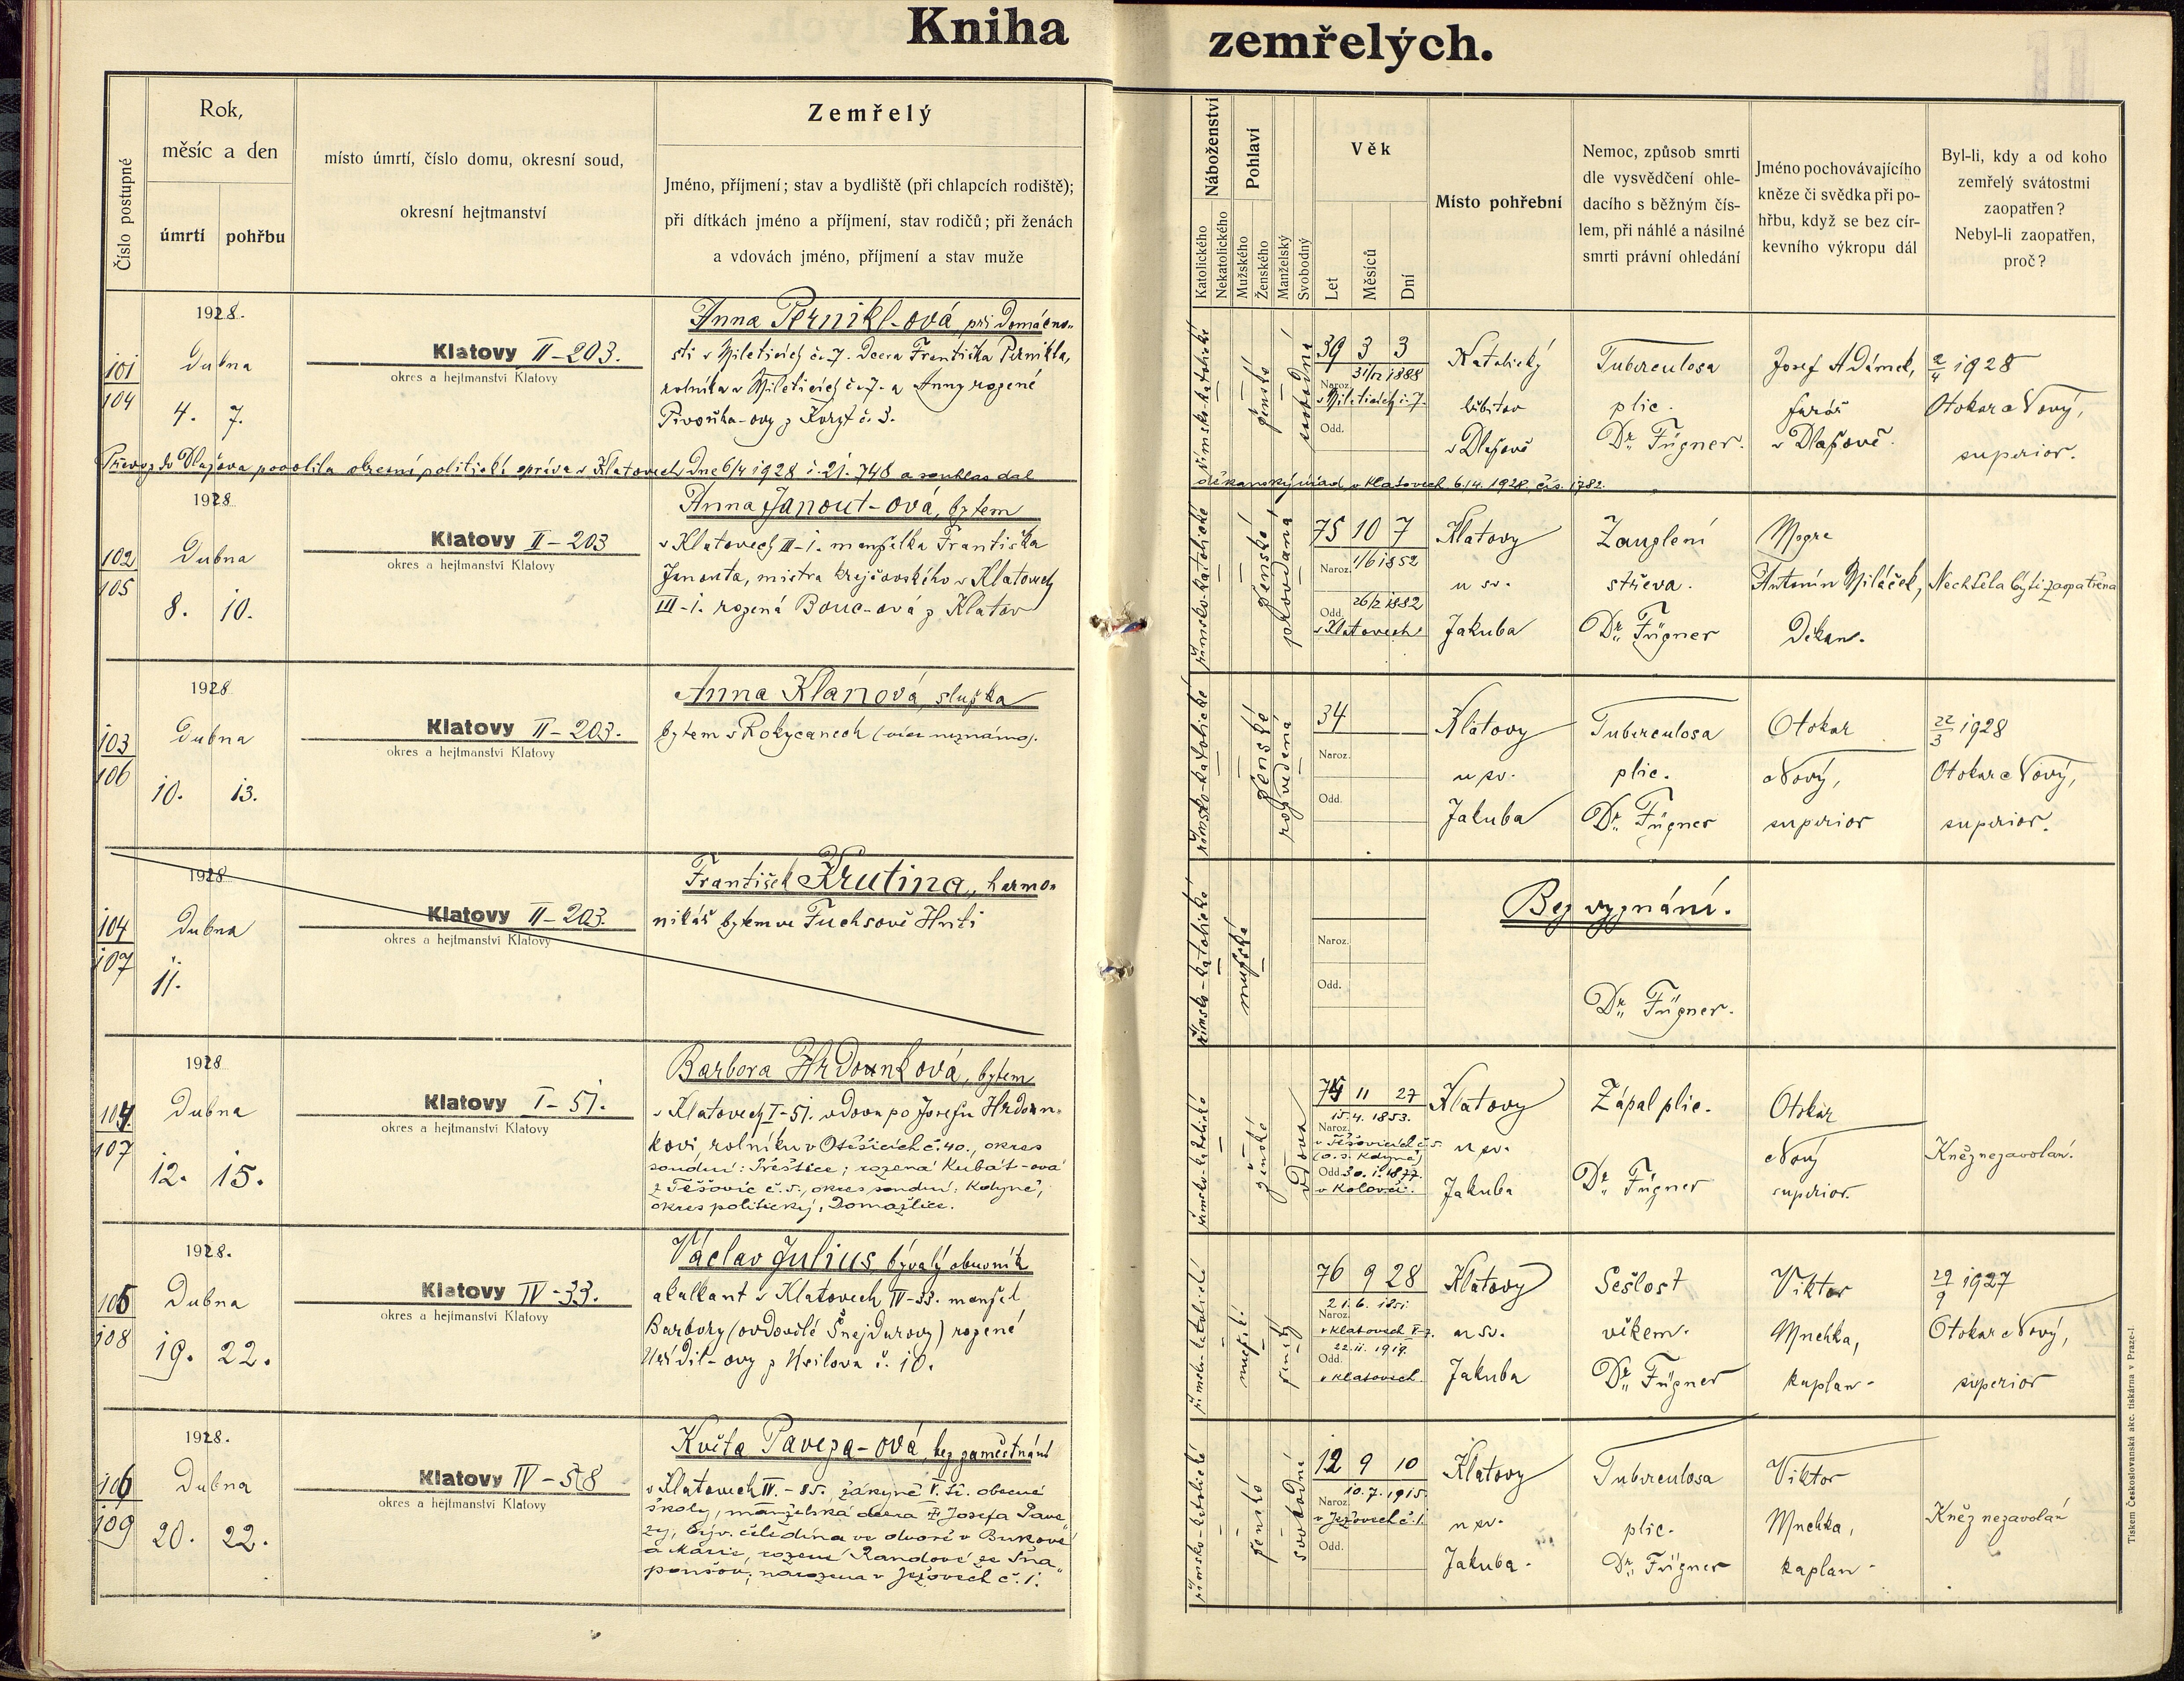 Kniha zemřelých.
Číslo postupné
Rok,
měsíc a den
úmrtí pohřbu
místo úmrtí, číslo domu, okresní soud,
okresní hejtmanství
Zemřelý
Jméno, příjmení; stav a bydliště (při chlapcích rodiště);
při dítkách jméno a příjmení, stav rodičů; při ženách
a vdovách jméno, příjmení a stav muže
Náboženství
Katolického
Nekatolického
Pohlaví
Mužského
Ženského
Manželský
Svobodný
Věk
Let
Měsíců
Dní
Místo pohřební
Nemoc, způsob smrti
dle vysvědčení ohle-
dacího s běžným čís-
lem, při náhlé a násilné
smrti právní ohledání
Jméno pochovávajícího
kněze či svědka při po-
hřbu, když se bez cír-
kevního výkropu dál
Byl-li, kdy a od koho
zemřelý svátostmi
zaopatřen?
Nebyl-li zaopatřen,
proč?
101
104
1928.
Dubna
4. 7.
Klatovy II-203.
okres a hejtmanství Klatovy
Anna Pernikl-ová, při domácno-
sti v Mileticích č. 7. Dcera Františka Pernikla,
rolníka v Mileticích č. 7. a Anny rozené
Pivoňka-ovy z č. 3.
římsko-katolické
ženské
svobodná
39 3 3
31/12 1888
Naroz. v Mileticích č. 7.
Odd.
Katolický
hřbitov
v Dlažově
Tuberculosa
plic.
Dr. Fügner.
Josef Adámek,
farář
v Dlažově.
2/4 1928
Otokar Nový,
superior.
Převoz do Dlažova povolila okresní politická správa v Klatovech dne 6/4 1928 č. 21.748 a souhlas dal
děkanský úřad v Klatovech 6.4. 1928, čís. 1782.
102
105
1928
Dubna
8. 10.
Klatovy II-203
okres a hejtmanství Klatovy
Anna Janout-ová, bytem
v Klatovech III-1. manželka Františka
Janouta, mistra krejčovského v Klatovech
III-1. rozená Bouc-ová z Klatov
římsko-katolické
ženské
provdaná
75 10 7
Naroz. 1/6 1852
Odd. 26/2 1882
v Klatovech
Klatovy
u sv.
Jakuba
Zauzlení
střeva.
Dr. Fügner
Msgre
Antonín Miláček,
Děkan.
Nechtěla býti zaopatřena
103
106
1928
Dubna
10. 13.
Klatovy II-203.
okres a hejtmanství Klatovy
Anna Klanová, služka
bytem v Rokycanech (více neznámo).
římsko-katolické
ženské
rozvedená
34
Naroz.
Odd.
Klatovy
u sv.
Jakuba
Tuberculosa
plic.
Dr. Fügner
Otokar
Nový,
superior
22/3 1928
Otokar Nový,
superior.
104
107
1928
Dubna
11.
Klatovy II-203.
okres a hejtmanství Klatovy
František Krutina, harmo-
nikář bytem ve Fuchsově Huti
římsko-katolické
mužské
Naroz.
Odd.
Bez vyznání.
Dr. Fügner.
104
107
1928
Dubna
12. 15.
Klatovy I-51.
okres a hejtmanství Klatovy
Barbora Hrdounková, bytem
v Klatovech I-51. vdova po Josefu Hrdoun-
kovi, rolníku v Otěšicích č. 40., okres
soudní: Přeštice; rozená Kubát-ová
z Těšovic č. 5., okres soudní: Kdyně,
okres politický: Domažlice.
římsko-katolické
ženské
vdova
74 11 27
15. 4. 1853.
Naroz. v Těšovicích č. 5.
(o. s. Kdyně)
Odd. 30. 1. 1877.
v Kolovči.
Klatovy
u sv.
Jakuba
Zápal plic.
Dr. Fügner
Otokar
Nový
superior.
Kněz nezavolán.
105
108
1928.
Dubna
19. 22.
Klatovy IV-33.
okres a hejtmanství Klatovy
Václav Julius, bývalý obuvník
a kalkant v Klatovech IV-33. manžel
Barbory (ovdovělé Šnejdurovy) rozené
č. 10.
římsko-katolické
mužské
ženatý
76 9 28
21. 6. 1851.
Naroz. v Klatovech V-7.
22. 11. 1919.
Odd. v Klatovech
Klatovy
u sv.
Jakuba
Sešlost
věkem.
Dr. Fügner
Viktor
Mnehka,
kaplan.
29/9 1927
Otokar Nový,
superior
106
109
1928.
Dubna
20. 22.
Klatovy IV-58
okres a hejtmanství Klatovy
Květa Paveza-ová, bez zaměstnání
v Klatovech IV.-85., žákyně V. tř. obecné
školy, manželská dcera Josefa Pave-
zy, býv. čeledína ve dvoře v Bukové
a Marie, rozené Randové ze Sna-
poušov, narozena v Ježovech č. 1.
římsko-katolické
ženské
svobodná
12 9 10
10. 7. 1915.
Naroz. v Ježovech č. 1.
Odd.
Klatovy
u sv.
Jakuba.
Tuberculosa
plic.
Dr. Fügner
Viktor
Mnehka,
kaplan.
Kněz nezavolán
Tiskem Československá akc. tiskárna v Praze-I.